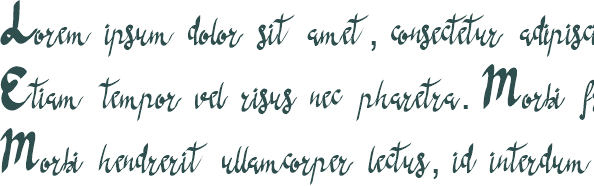 Lorem ipsum dolor sit amet, consectetur adipisci
Etiam tempor vel risus nec pharetra. Morbi f
Morbi hendrerit ullamcorper lectus, id interdum